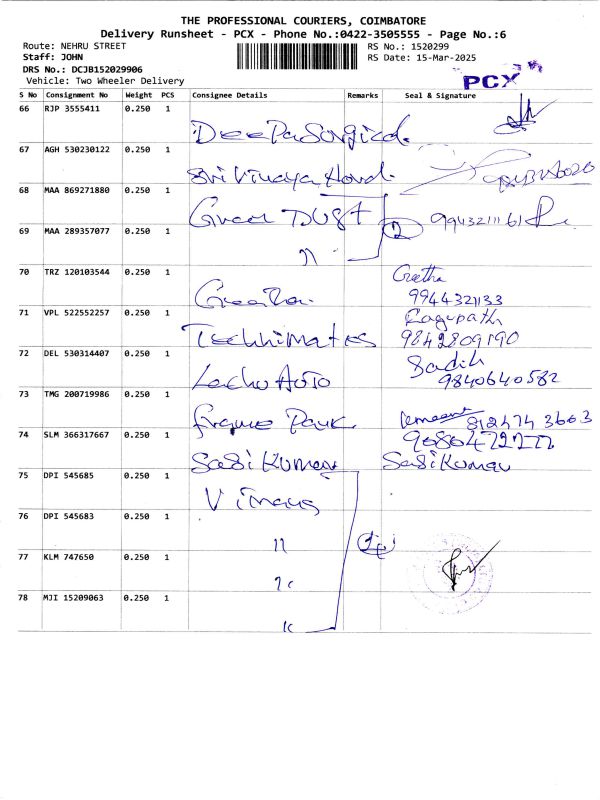 THE PROFESSIONAL COURIERS, COIMBATORE
Delivery Runsheet - PCX - Phone No.:0422-3505555 - Page No.:6
Route: NEHRU STREET RS No.: 1520299
Staff: JOHN RS Date: 15-Mar-2025
DRS No.: DCJB152029906
Vehicle: Two Wheeler Delivery PCX
S No Consignment No Weight PCS Consignee Details Remarks Seal & Signature
66 RJP 3555411 0.250 1
67 AGH 530230122 0.250 1 Sri Vinaya
68 MAA 869271880 0.250 1 Green DUST 2 9943211161
69 MAA 289357077 0.250 1 "
70 TRZ 120103544 0.250 1 Geetha 9944321133
71 VPL 522552257 0.250 1 Ragupath 9842809190
72 DEL 530314407 0.250 1 Auto Sadik 9840640582
73 TMG 200719986 0.250 1 812474 3603
74 SLM 366317667 0.250 1 Sasi Kumar Sasi Kumar
75 DPI 545685 0.250 1
76 DPI 545683 0.250 1 "
77 KLM 747650 0.250 1
78 MJI 15209063 0.250 1